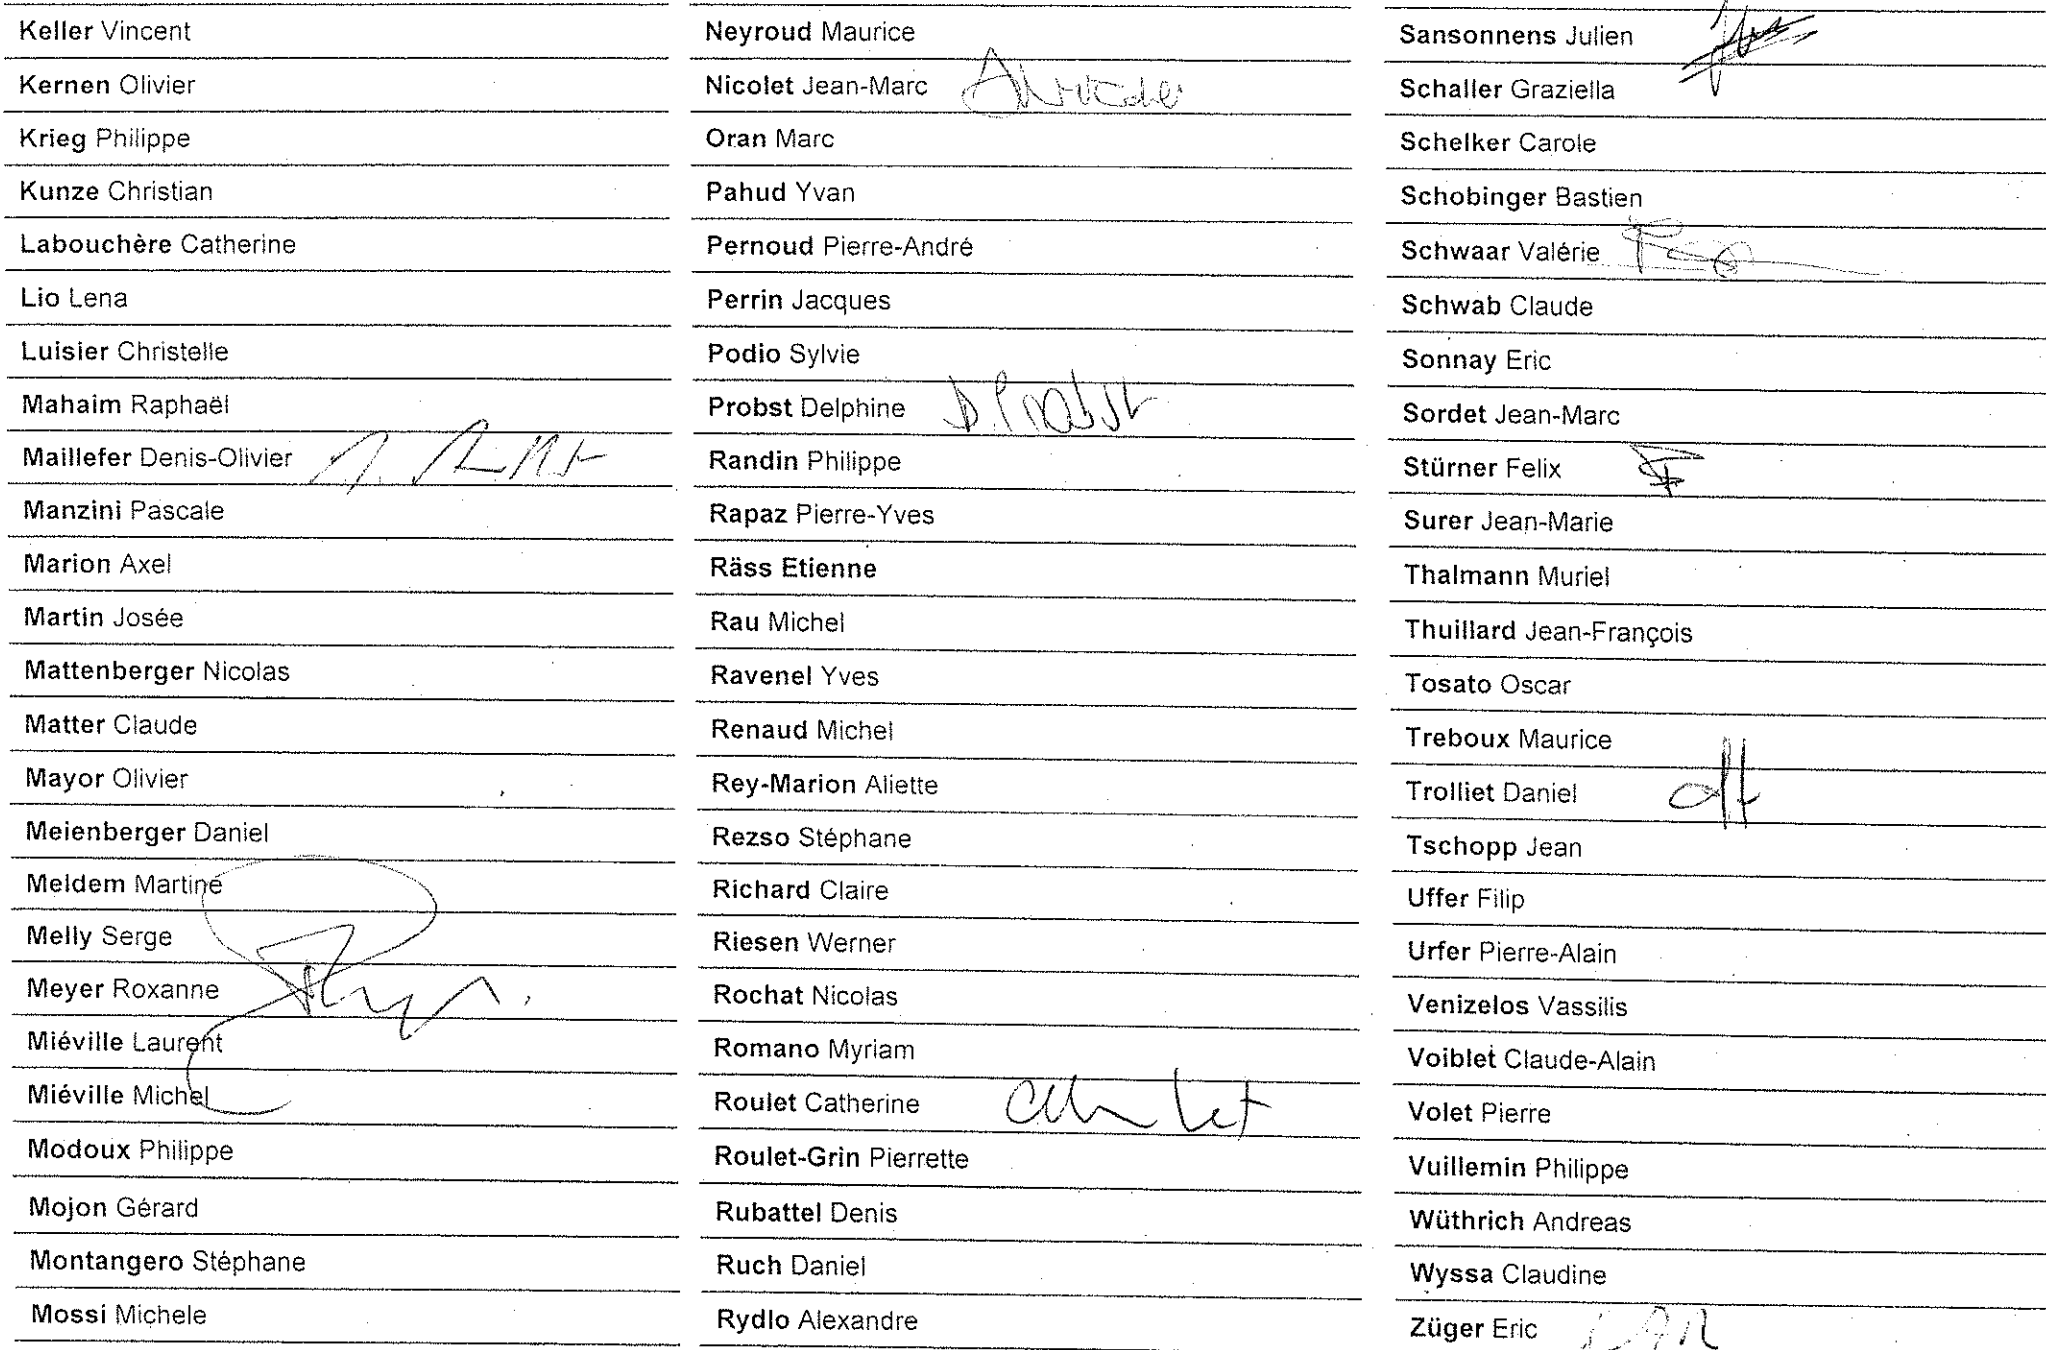 Keller Vincent
Kernen Olivier
Krieg Philippe
Kunze Christian
Labouchère Catherine
Lio Lena
Luisier Christelle
Mahaim Raphaël
Maillefer Denis-Olivier
Manzini Pascale
Marion Axel
Martin Josée
Mattenberger Nicolas
Matter Claude
Mayor Olivier
Meienberger Daniel
Meldem Martine
Melly Serge
Meyer Roxanne
Miéville Laurent
Miéville Michel
Modoux Philippe
Mojon Gérard
Montangero Stéphane
Mossi Michele
Neyroud Maurice
Nicolet Jean-Marc
Oran Marc
Pahud Yvan
Pernoud Pierre-André
Perrin Jacques
Podio Sylvie
Probst Delphine D. Probst
Randin Philippe
Rapaz Pierre-Yves
Räss Etienne
Rau Michel
Ravenel Yves
Renaud Michel
Rey-Marion Aliette
Rezso Stéphane
Richard Claire
Riesen Werner
Rochat Nicolas
Romano Myriam
Roulet Catherine
Roulet-Grin Pierrette
Rubattel Denis
Ruch Daniel
Rydlo Alexandre
Sansonnens Julien
Schaller Graziella
Schelker Carole
Schobinger Bastien
Schwaar Valérie
Schwab Claude
Sonnay Eric
Sordet Jean-Marc
Stürner Felix
Surer Jean-Marie
Thalmann Muriel
Thuillard Jean-François
Tosato Oscar
Treboux Maurice
Trolliet Daniel
Tschopp Jean
Uffer Filip
Urfer Pierre-Alain
Venizelos Vassilis
Voiblet Claude-Alain
Volet Pierre
Vuillemin Philippe
Wüthrich Andreas
Wyssa Claudine
Züger Eric